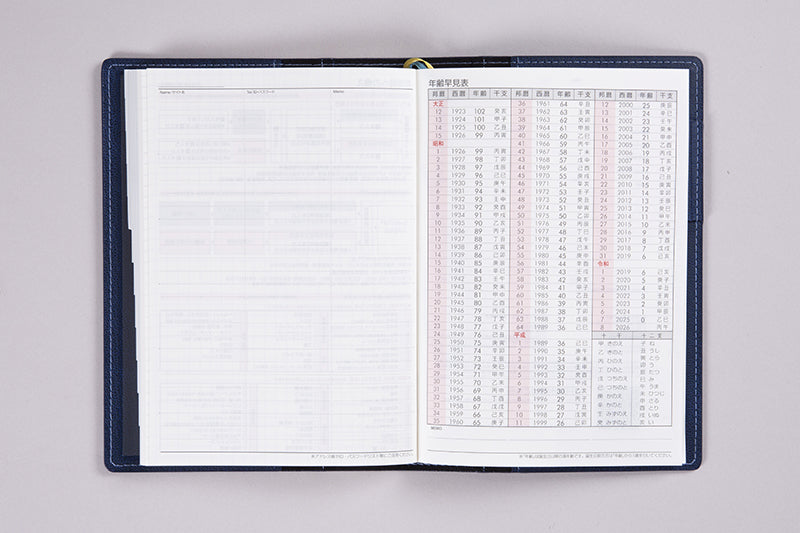 Name・サイト名 Tel・ID・パスワード Memo
※アドレス帳やID・パスワードリスト等にご活用ください。
年齢早見表
邦暦 西暦 年齢 干支
大正
12 1923 102 癸亥
13 1924 101 甲子
14 1925 100 乙丑
15 1926 99 丙寅
昭和
1 1926 99 丙寅
2 1927 98 丁卯
3 1928 97 戊辰
4 1929 96 己巳
5 1930 95 庚午
6 1931 94 辛未
7 1932 93 壬申
8 1933 92 癸酉
9 1934 91 甲戌
10 1935 90 乙亥
11 1936 89 丙子
12 1937 88 丁丑
13 1938 87 戊寅
14 1939 86 己卯
15 1940 85 庚辰
16 1941 84 辛巳
17 1942 83 壬午
18 1943 82 癸未
19 1944 81 甲申
20 1945 80 乙酉
21 1946 79 丙戌
22 1947 78 丁亥
23 1948 77 戊子
24 1949 76 己丑
25 1950 75 庚寅
26 1951 74 辛卯
27 1952 73 壬辰
28 1953 72 癸巳
29 1954 71 甲午
30 1955 70 乙未
31 1956 69 丙申
32 1957 68 丁酉
33 1958 67 戊戌
34 1959 66 己亥
35 1960 65 庚子
邦暦 西暦 年齢 干支
36 1961 64 辛丑
37 1962 63 壬寅
38 1963 62 癸卯
39 1964 61 甲辰
40 1965 60 乙巳
41 1966 59 丙午
42 1967 58 丁未
43 1968 57 戊申
44 1969 56 己酉
45 1970 55 庚戌
46 1971 54 辛亥
47 1972 53 壬子
48 1973 52 癸丑
49 1974 51 甲寅
50 1975 50 乙卯
51 1976 49 丙辰
52 1977 48 丁巳
53 1978 47 戊午
54 1979 46 己未
55 1980 45 庚申
56 1981 44 辛酉
57 1982 43 壬戌
58 1983 42 癸亥
59 1984 41 甲子
60 1985 40 乙丑
61 1986 39 丙寅
62 1987 38 丁卯
63 1988 37 戊辰
64 1989 36 己巳
平成
1 1989 36 己巳
2 1990 35 庚午
3 1991 34 辛未
4 1992 33 壬申
5 1993 32 癸酉
6 1994 31 甲戌
7 1995 30 乙亥
8 1996 29 丙子
9 1997 28 丁丑
10 1998 27 戊寅
11 1999 26 己卯
邦暦 西暦 年齢 干支
12 2000 25 庚辰
13 2001 24 辛巳
14 2002 23 壬午
15 2003 22 癸未
16 2004 21 甲申
17 2005 20 乙酉
18 2006 19 丙戌
19 2007 18 丁亥
20 2008 17 戊子
21 2009 16 己丑
22 2010 15 庚寅
23 2011 14 辛卯
24 2012 13 壬辰
25 2013 12 癸巳
26 2014 11 甲午
27 2015 10 乙未
28 2016 9 丙申
29 2017 8 丁酉
30 2018 7 戊戌
31 2019 6 己亥
令和
1 2019 6 己亥
2 2020 5 庚子
3 2021 4 辛丑
4 2022 3 壬寅
5 2023 2 癸卯
6 2024 1 甲辰
7 2025 0 乙巳
8 2026 丙午
十干 十二支
甲 きのえ 子 ね
乙 きのと 丑 うし
丙 ひのえ 寅 とら
丁 ひのと 卯 う
戊 つちのえ 辰 たつ
己 つちのと 巳 み
庚 かのえ 午 うま
辛 かのと 未 ひつじ
壬 みずのえ 申 さる
癸 みずのと 酉 とり
戌 いぬ
亥 い
MEMO